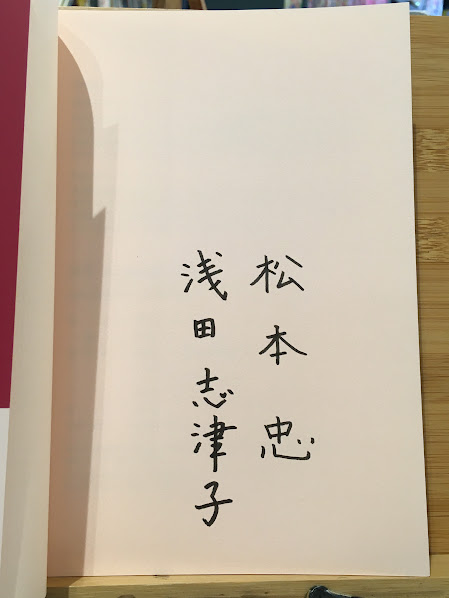 松本忠
浅田志津子